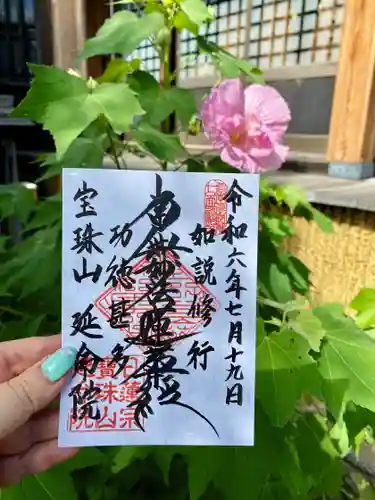 令和六年七月十九日
如説修行
南無妙法蓮華経
功徳甚多
宝珠山 延命院